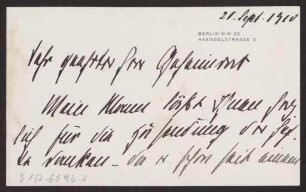 21. Sept. 1910
BERLIN N.W. 23
HAENDELSTRASSE 3.
Sehr geehrter Herr Geheimrat
Mein Mann läßt Ihnen herz-
lich für die Zusendung der
danken – da er schon seit einem